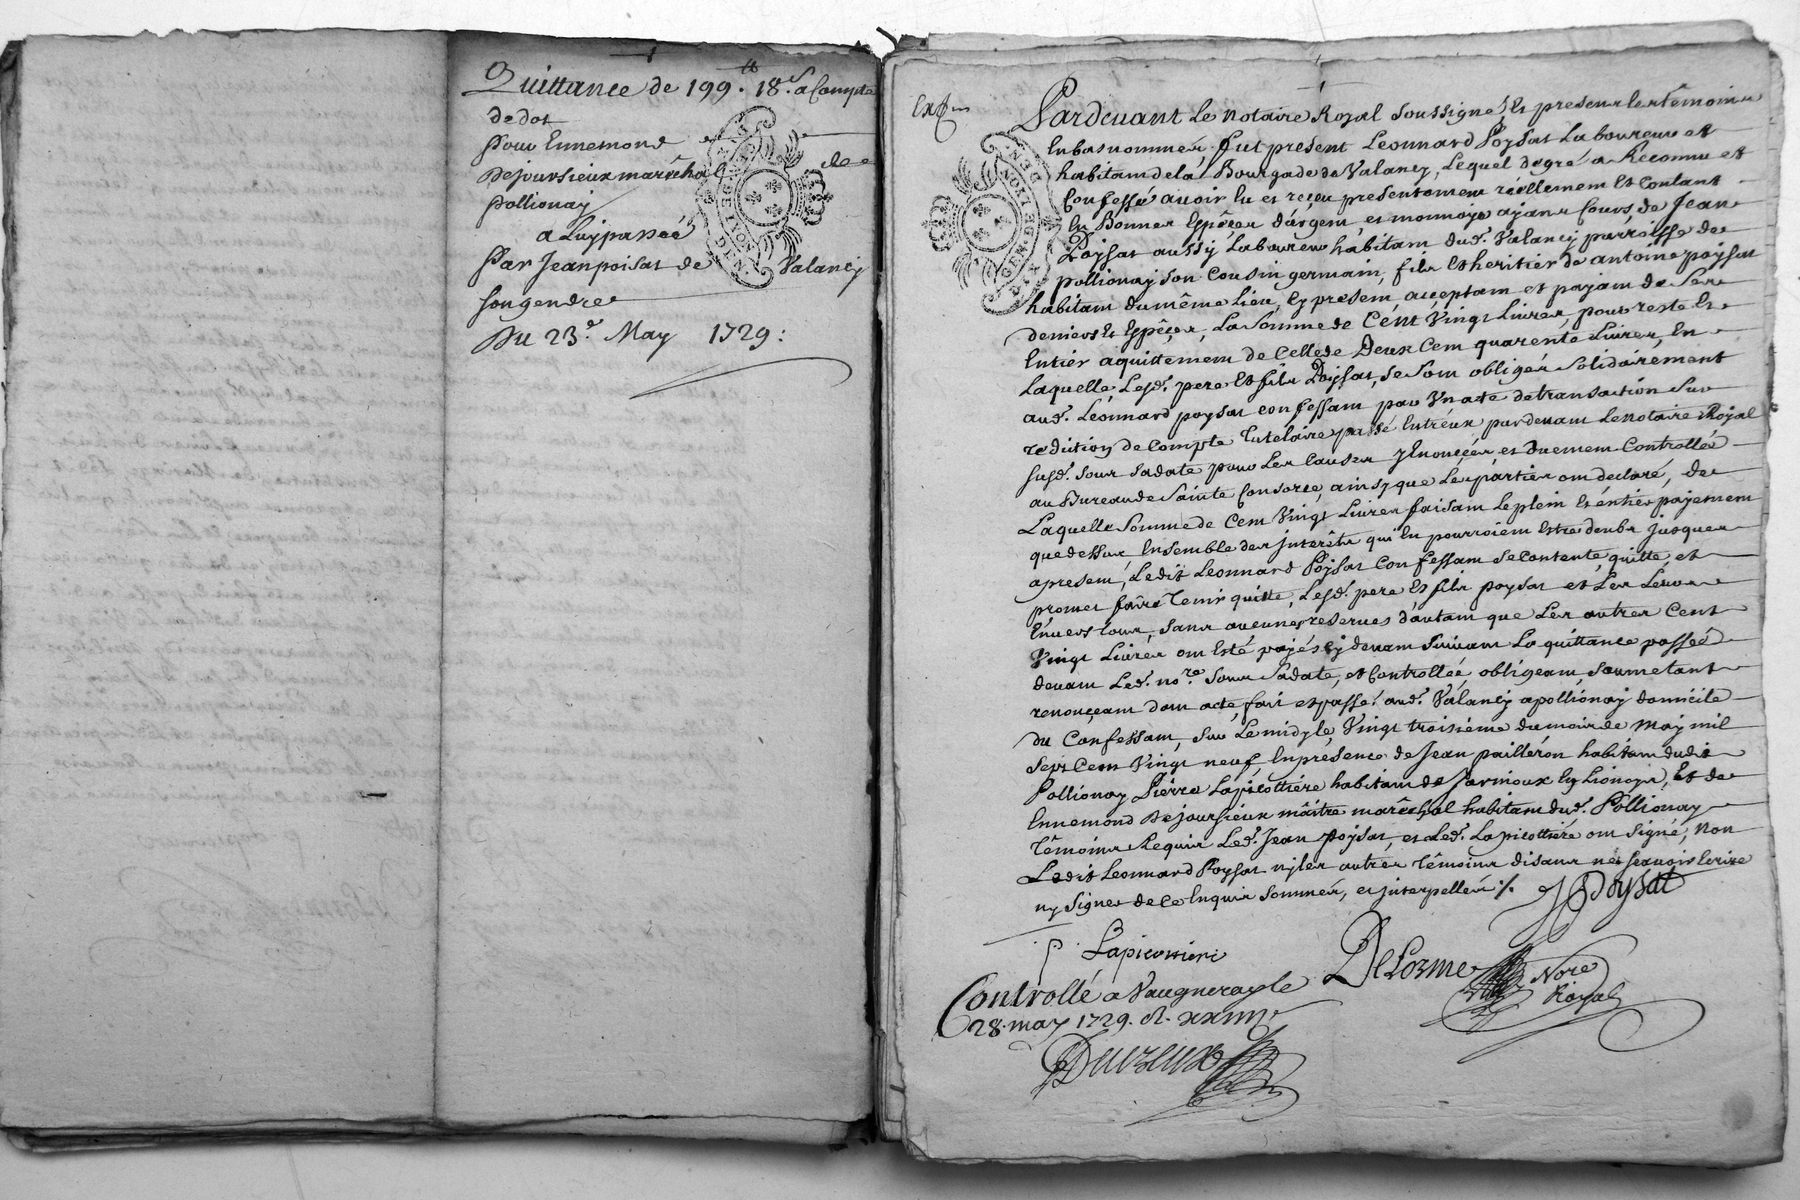 Quittance de 199.tt 18.s a Compte
de dot
Pour Ennemond
Dejoursieux maréchal de
Pollionay
a Luy passée
Par Jean poisat de Valancy
son gendre
Du 23.e May 1729:
GEN. LYON GEN.
Exp.on
GEN. LYON GEN.
Pardevant Le Notaire Royal Soussigné, Et presens les têmoins
En bas nommés fut present Leonnard Poysat Laboureur et
habitant de la Bourgade de Valancy, Lequel de gré a Reconnu et
Confessé avoir Eu et reçeu presentement réellement Et Contant
En Bonnes Espêces d'argent, et monnoye ajant Cours, de Jean
Poysat aussy Laboureur habitant dud. Valancy parroisse de
pollionay son Cousin germain, fils Et heritier de antoine poysat
habitant du même Lieu, Cy present, acceptant et payant de Ses
deniers Et Espêçes, La Somme de Cent Vingt Livres, pour reste Et
Entier aquittement de Celle de Deux Cent quarente Livres, En
Laquelle, Lesd. pere Et fils Poysat, se Sont obligés Solidairement
aud. Léonnard poysat confessant par Un acte de transaction Sur
redition de Compte Tutélaire passé Entréux pardevant Le notaire Royal
susd. sous sa date pour Les Causes y Enoncées, et duement Controllée
au Bureau de Sainte Consorce, ainsy que Les parties ont declaré, de
Laquelle Somme de Cent Vingt Livres faisant Le plein Et éntier payement
que dessus, Ensemble des jnterêts qui En pourroient Estre deubs jusques
a present, Ledit Leonnard Poysat Confessant se Contente, quitte, et
promet faire Tenir quitte, Lesd. pere Et fils poysat et Les Leurs
Envers tous, sans aucunes reserves d'autant que Les autres Cent
Vingt Livres ont Esté payés Cy devant Suivant La quittance passée
devant Led. no.re sous Sadate, et Controllée, obligeant, soumetant
renonçeant dont acte, fait et passé aud. Valancy a pollionay domicile
du Confessant, sur Le midy Le Vingt troisiéme du mois de May mil
Sept Cent Vingt neuf En présence de Jean pailleron habitant dudit
Pollionay Pierre Lapicottiére habitant de Jarnioux En Lionois, Et de
Ennemond Dejoursieux maître marêchal habitant dud. Pollionay
Têmoins Requis Led. Jean Poysat, et Led. Lapicottiére ont Signé, Non
Ledit Leonnard Poysat ny les autres Têmoins disans ne sçavoir Ecrire
ny Signer de Ce Enquis Sommés, et jnterpellés %.
J Poysat
P. Lapicottiere
DeLorme Nore
Royal
Controllé a Vaugneray le
28. may 1729.